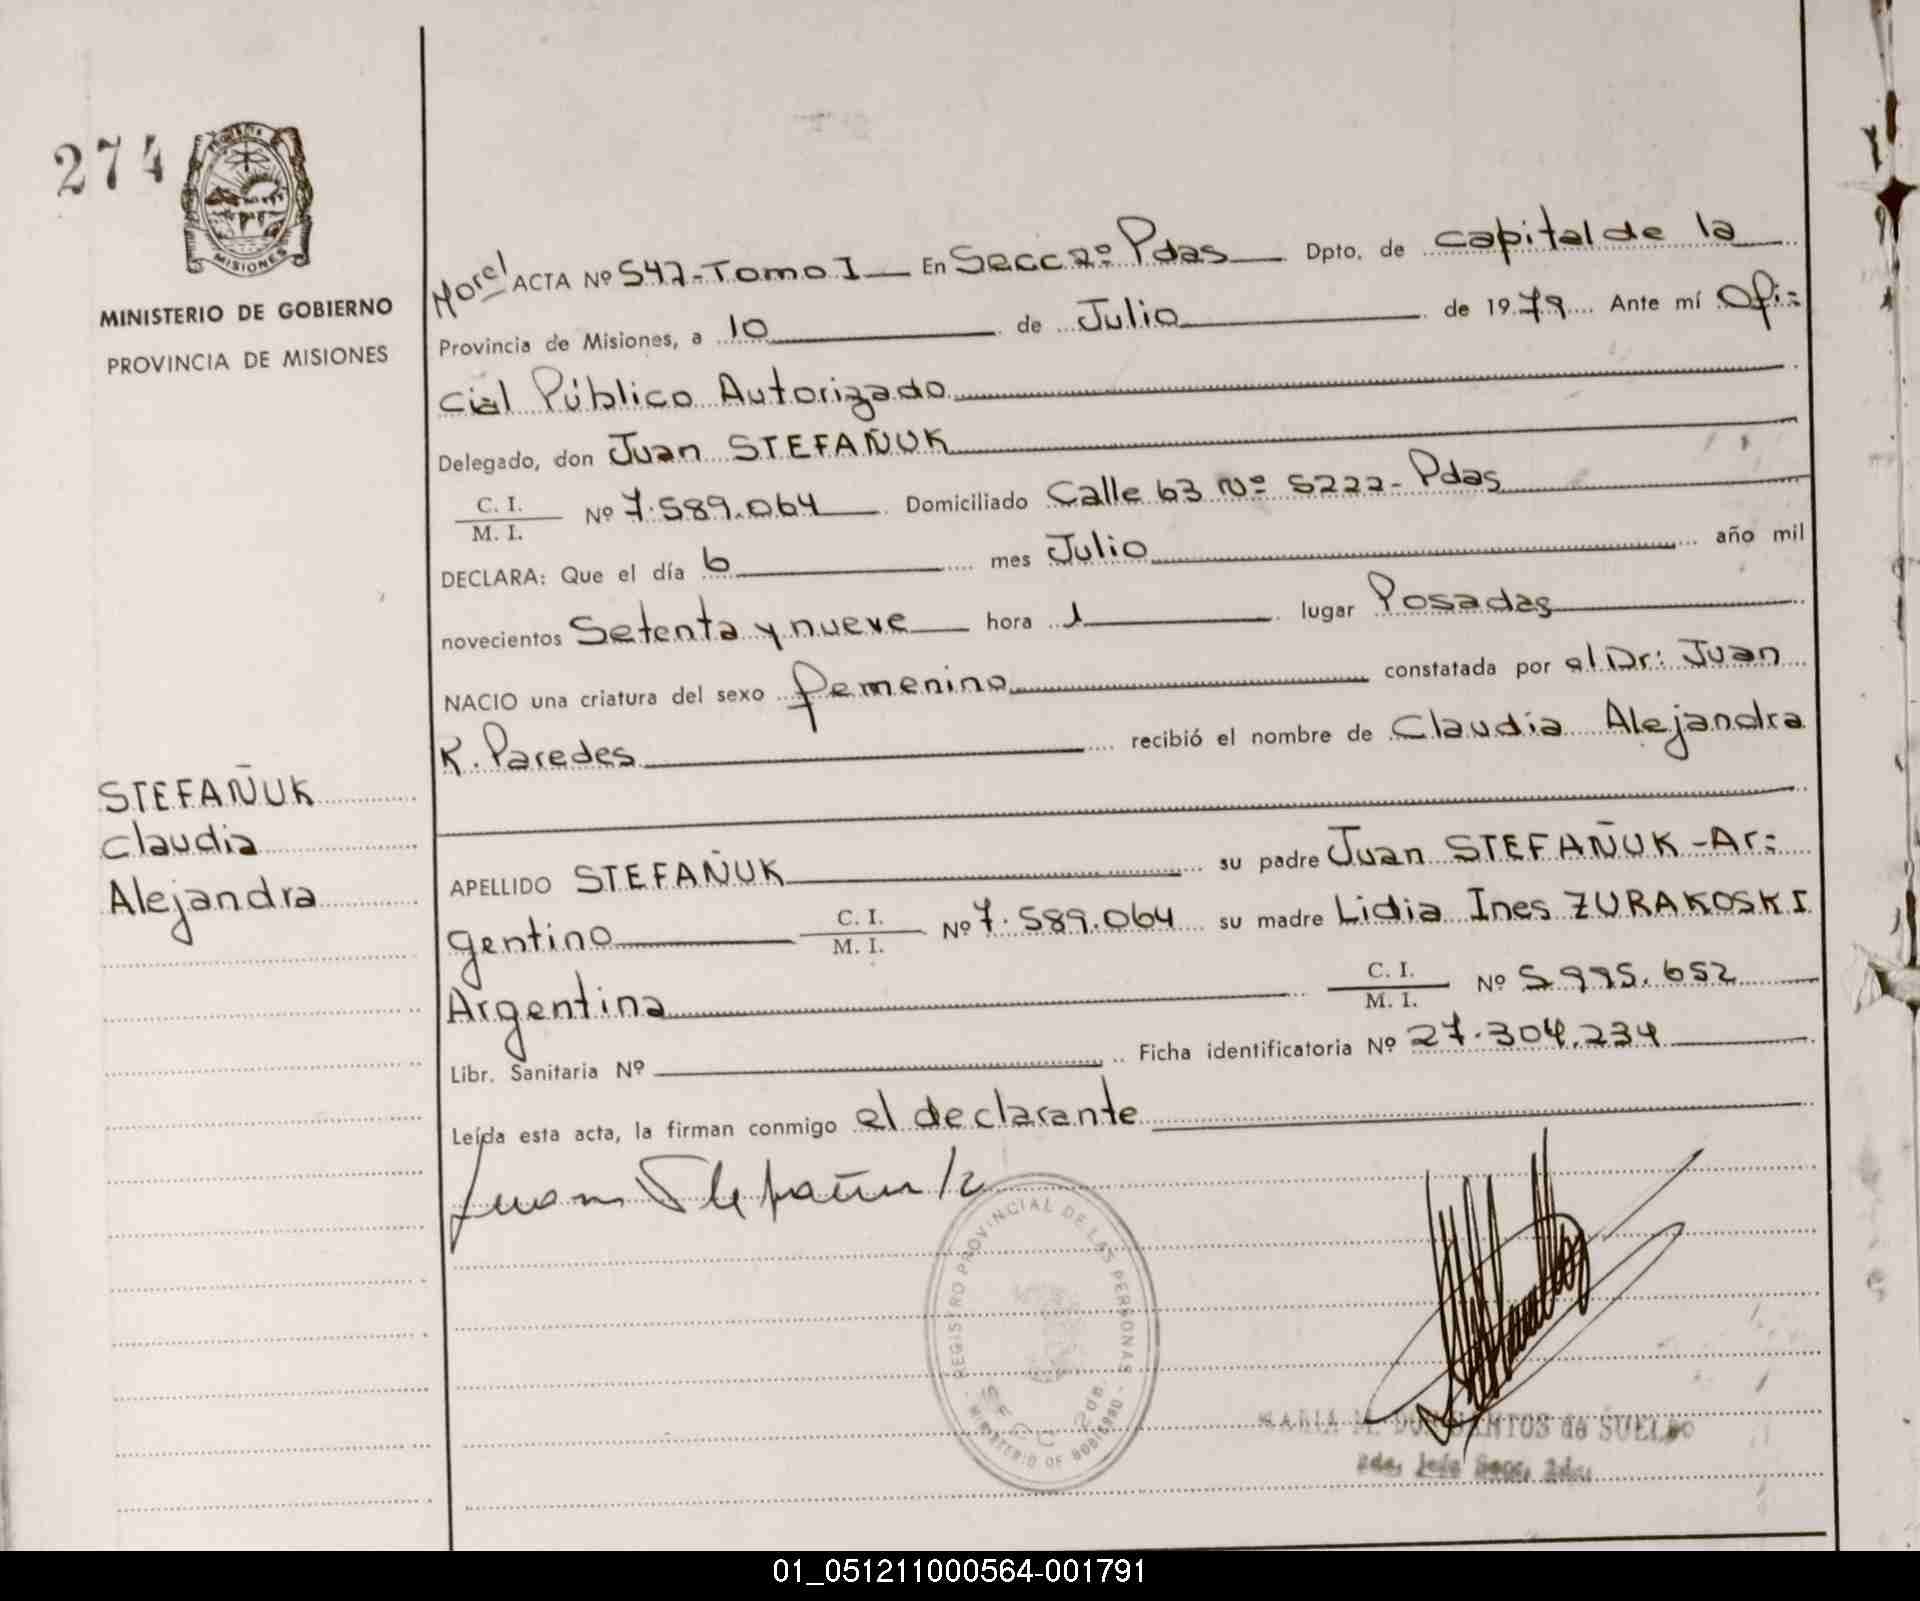 274
MISIONES
MINISTERIO DE GOBIERNO
PROVINCIA DE MISIONES
STEFAÑUK
Claudia
Alejandra
ACTA Nº 547-Tomo I En Secc 2º Pdas Dpto. de capital de la
Provincia de Misiones, a 10 de Julio de 1979 Ante mí Ofi=
cial Público Autorizado
Delegado, don Juan STEFAÑUK
C. I.
M. I. Nº 7.589.064 Domiciliado Calle 63 Nº 5222- Pdas
DECLARA: Que el día 6 mes Julio año mil
novecientos Setenta y nueve hora 1 lugar Posadas
NACIO una criatura del sexo femenino constatada por el Dr: Juan
R. Paredes recibió el nombre de Claudia Alejandra
APELLIDO STEFAÑUK su padre Juan STEFAÑUK -Ar=
gentino C. I. M. I. Nº 7.589.064 su madre Lidia Ines ZURAKOSKI
Argentina C. I. M. I. Nº 5.995.652
Libr. Sanitaria Nº Ficha identificatoria Nº 27.304.234
Leída esta acta, la firman conmigo el declarante
Juan Stefañuk
REGISTRO PROVINCIAL DE LAS PERSONAS
SECC 2da.
MINISTERIO DE GOBIERNO
MARIA M. DOS SANTOS de SUELDO
2da. Jefe Secc. 2da.
01_051211000564-001791